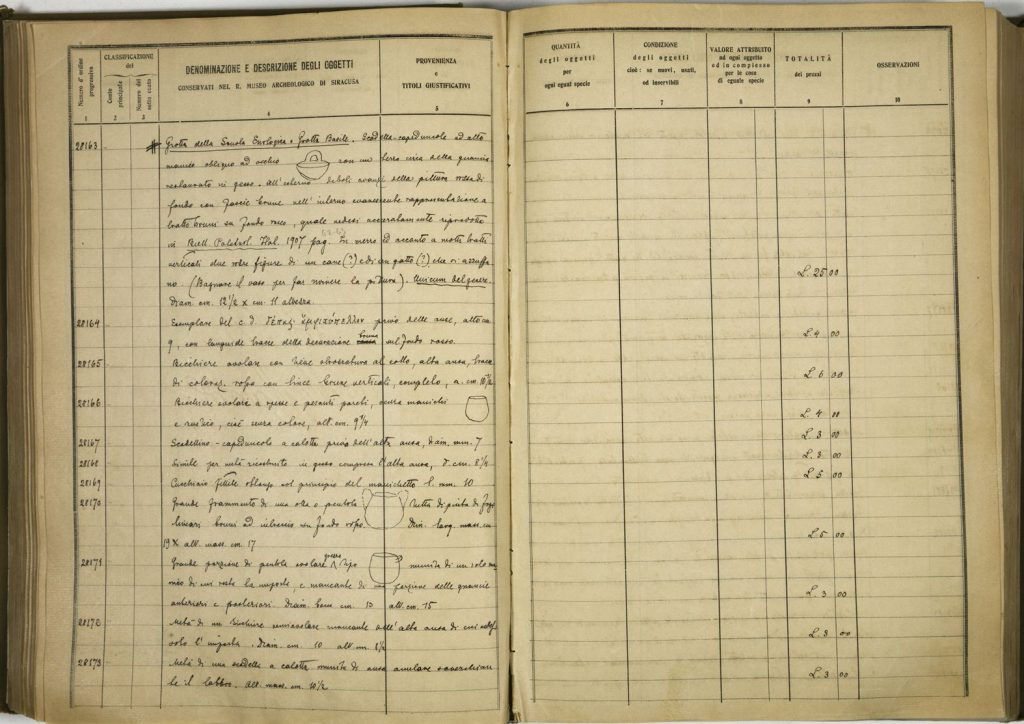 Numero d'ordine progressivo
CLASSIFICAZIONE
del
Conto principale
Numero del sotto conto
DENOMINAZIONE E DESCRIZIONE DEGLI OGGETTI
CONSERVATI NEL R. MUSEO ARCHEOLOGICO DI SIRACUSA
PROVENIENZA
e
TITOLI GIUSTIFICATIVI
1 2 3 4 5
QUANTITÀ
degli oggetti
per
ogni egual specie
CONDIZIONE
degli oggetti
cioè: se nuovi, usati,
od inservibili
VALORE ATTRIBUITO
ad ogni oggetto
od in complesso
per le cose
di eguale specie
TOTALITÀ
dei prezzi
OSSERVAZIONI
6 7 8 9 10
28163 # Grotta della Scuola Enologica e Grotta Basile. Scodella-capeduncola ad alto
manico obliquo ad orecchio con un terzo circa della
restaurato in gesso. All'esterno deboli avanzi della pittura rossa di
fondo con fascie brune nell'interno evanescente rappresentazione a
tratto bruni su fondo roseo, quale vedesi accuratamente riprodotta
in Bull. Paletnol. Ital. 1907 pag. In mezzo ed accanto a molti tratti
verticali due figure di un cane (?) e di un gatto (?) che si azzuffa
no. (Bagnare il vaso per far rinvenire la pittura). Unicum del genere.
Diam. cm. 12 1/2 x cm. 11 altezza
L. 25 00
28164 Esemplare del c. d. δέπας ἀμφικύπελλον privo delle anse, alto cm
9, con languide tracce della decorazione bruna sul fondo rosso.
L. 4 00
28165 Bicchiere ovolare con alta ansa, tracce
di coloraz. rossa con linee brune verticali, completo, a. cm 10 1/2
L. 6 00
28166 Bicchiere ovolare a spesse e pesanti pareti, senza manichi
e rustico, cioè senza colore, alt. cm. 9 1/4
L. 4 00
28167 Scodellino-capeduncola a calotta privo dell'alta ansa, diam. mm. 7
L. 3 00
28168 Simile per metà ricostruito in gesso compresa l'alta ansa, d. cm. 8 1/4
L. 3 00
28169 Cucchiaio fittile oblungo col principio del manichetto l. mm. 10
L. 5 00
28170 Grande frammento di una olla o pentola tutta dipinta di fasce
lineari bruni ad intreccio su fondo rosso. Dim. larg. mass. cm
19 x alt. mass. cm. 17
L. 5 00
28171 Grande porzione di pentola ovolare grezza tipo munita di un solo ma
nico di cui resta la imposta, e mancante di una porzione delle
anteriori e posteriori. Diam. cm. 10 alt. cm. 15
L. 3 00
28172 Metà di un bicchiere semiovolare mancante dell'alta ansa di cui
solo l'imposta. Diam. cm. 10 alt. cm. 8 1/2
L. 3 00
28173 Metà di una scodella a calotta munita di ansa anulare soverchian
te il labbro. Alt. mass. cm. 10 1/2
L. 3 00